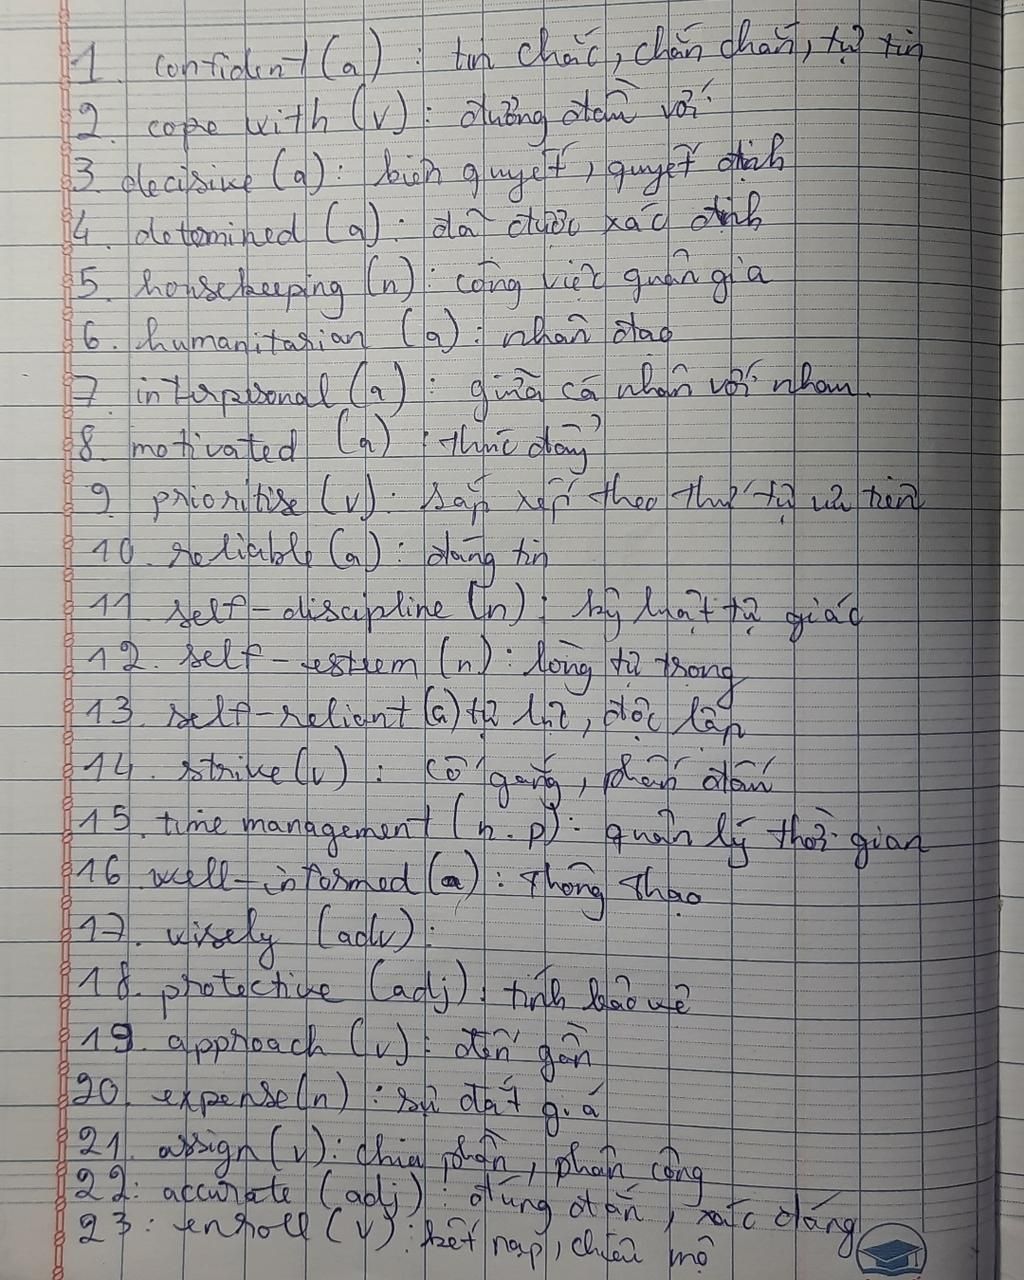 1. confident (a) : tin chắc, chắn chắn, tự tin
2. cope with (v) : đương đầu với
3. decisive (a) : kiên quyết, quyết định
4. detemined (a) : đã được xác định
5. housekeeping (n) : công việc quản gia
6. humanitarian (a) : nhân đạo
7. interpersonal (a) : giữa cá nhân với nhau
8. motivated (a) : thúc đẩy
9. prioritise (v) : sắp xếp theo thứ tự ưu tiên
10. reliable (a) : đáng tin
11. self-discipline (n) : kỷ luật tự giác
12. self-esteem (n) : lòng tự trọng
13. self-reliant (a) tự lực, độc lập
14. strive (v) : cố gắng, phấn đấu
15. time management (n.p) : quản lý thời gian
16 well-informed (a) : thông thạo
17. wisely (adv) :
18. protective (adj) : tính bảo vệ
19. approach (v) : đến gần
20. expense (n) : sự đắt giá
21. assign (v) : chia phần, phân công
22: accurate (adj) : đúng đắn, xác đáng
23: enroll (v) : kết nạp, chiêu mộ